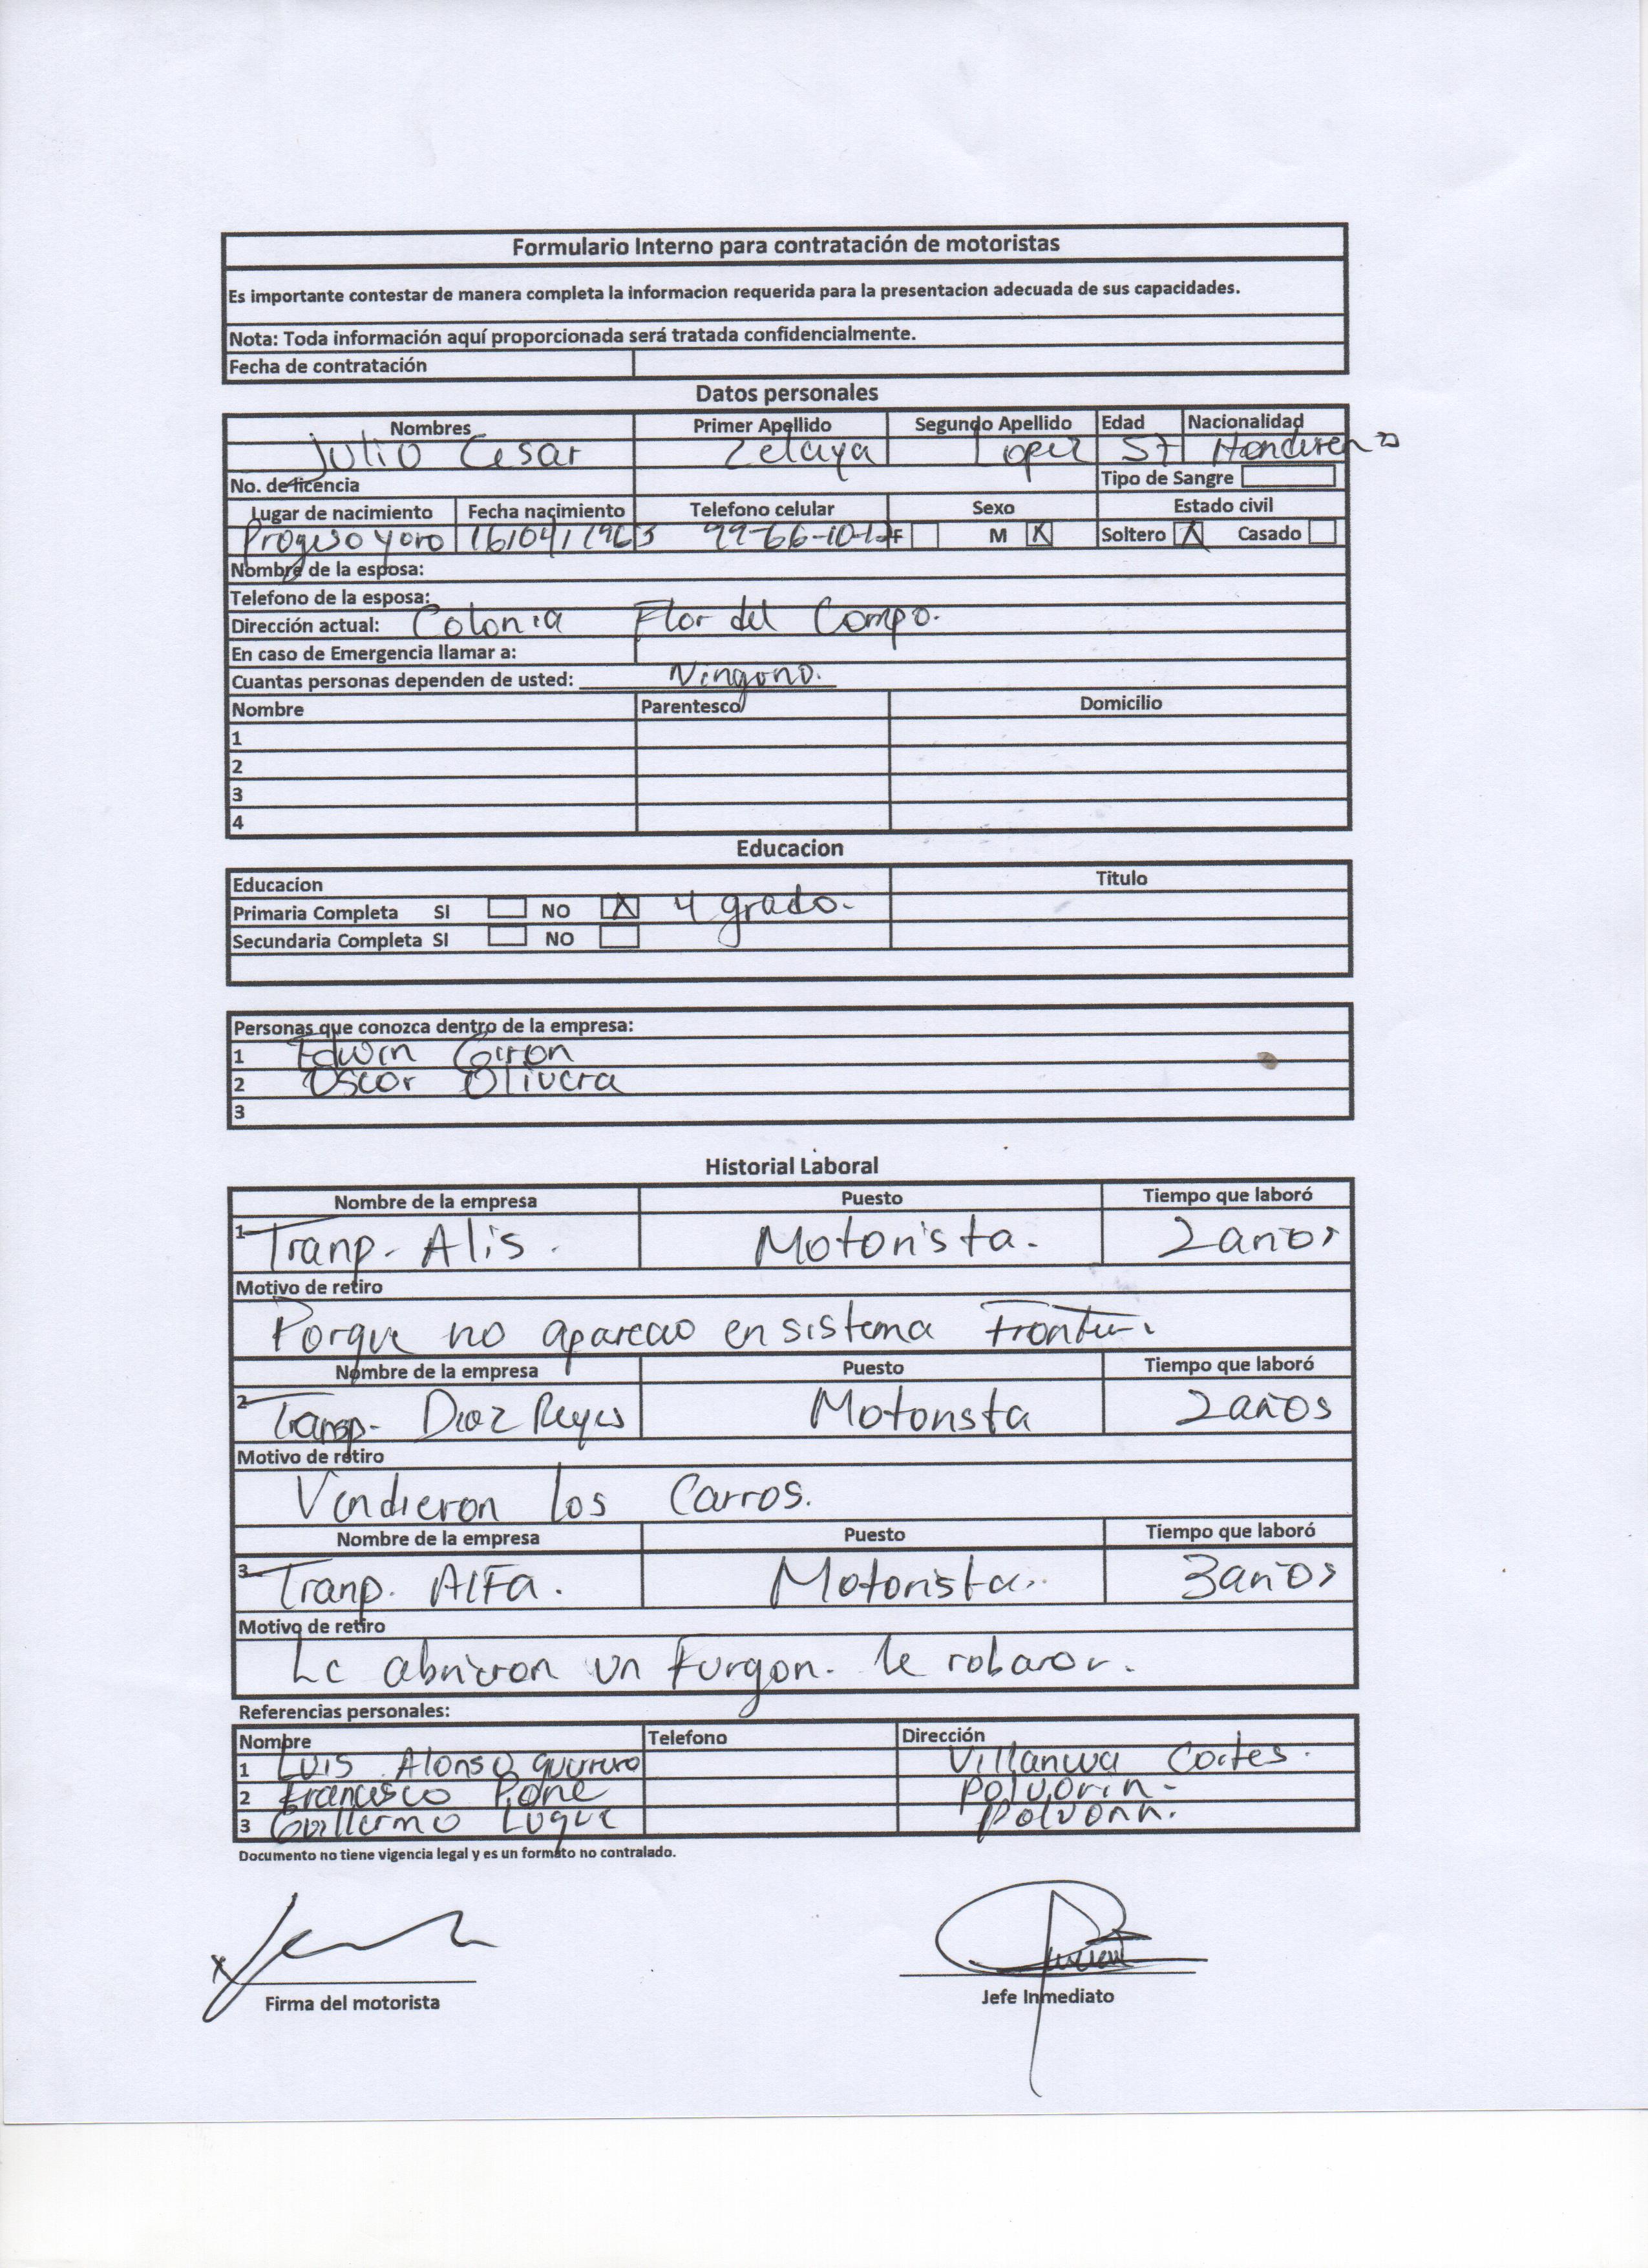 Formulario Interno para contratación de motoristas
Es importante contestar de manera completa la informacion requerida para la presentacion adecuada de sus capacidades.
Nota: Toda información aquí proporcionada será tratada confidencialmente.
Fecha de contratación
Datos personales
Nombres Primer Apellido Segundo Apellido Edad Nacionalidad
Julio Cesar Zelaya Lopez 57
No. de licencia Tipo de Sangre
Lugar de nacimiento Fecha nacimiento Telefono celular Sexo Estado civil
Progreso yoro 16/04/1963 F M X Soltero X Casado
Nombre de la esposa:
Telefono de la esposa:
Dirección actual: Colonia Flor del Campo.
En caso de Emergencia llamar a:
Cuantas personas dependen de usted: Ninguno.
Nombre Parentesco Domicilio
1
2
3
4
Educacion
Educacion Titulo
Primaria Completa SI NO X 4 grado.
Secundaria Completa SI NO
Personas que conozca dentro de la empresa:
1 Edwin Giron
2 Oscar Olivera
3
Historial Laboral
Nombre de la empresa Puesto Tiempo que laboró
1 Tranp. Alis. Motorista. 2 años
Motivo de retiro
Porque no aparecio en sistema
Nombre de la empresa Puesto Tiempo que laboró
2 Transp. Diaz Reyes Motorista 2 años
Motivo de retiro
Vendieron los Carros.
Nombre de la empresa Puesto Tiempo que laboró
3 Tranp. Alfa. Motorista. 3 años
Motivo de retiro
Le abrieron un Furgon. le robaron.
Referencias personales:
Nombre Telefono Dirección
1 Luis Alonso Guerrero Villanueva Cortes.
2 Francisco Polvorin.
3 Guillermo Luque Polvorin.
Documento no tiene vigencia legal y es un formato no contralado.
Firma del motorista Jefe Inmediato